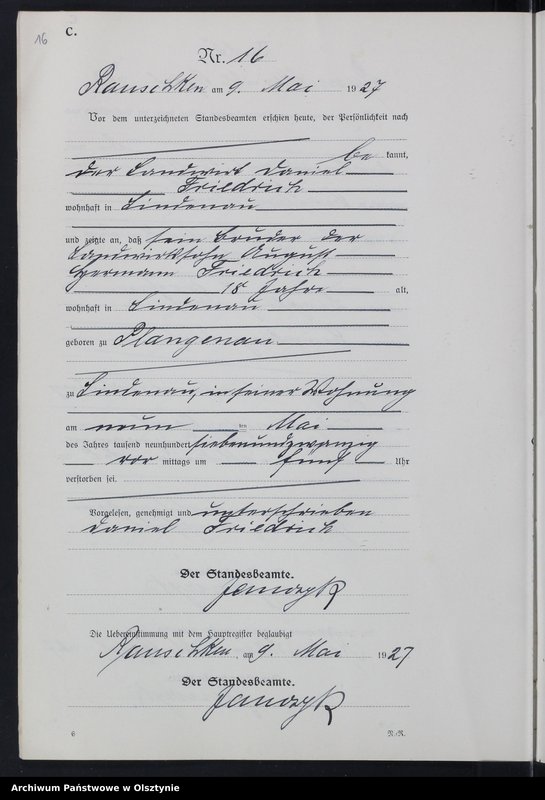 16
C.
Nr. 16
Rauschken am 9. Mai 1927
Vor dem unterzeichneten Standesbeamten erschien heute, der Persönlichkeit nach
be kannt,
der Landwirt Daniel
Friedrich
wohnhaft in Lindenau
und zeigte an, daß sein Bruder der
Landwirtssohn August
Hermann Friedrich
18 Jahre alt,
wohnhaft in Lindenau
geboren zu Plangenau
zu Lindenau, in seiner Wohnung
am neun ten Mai
des Jahres tausend neunhundert siebenundzwanzig
vor mittags um fünf Uhr
verstorben sei.
Vorgelesen, genehmigt und unterschrieben
Daniel Friedrich
Der Standesbeamte.
Janczyk
Die Uebereinstimmung mit dem Hauptregister beglaubigt
Rauschken, am 9. Mai 1927
Der Standesbeamte.
Janczyk
6 N.-R.
Archiwum Państwowe w Olsztynie